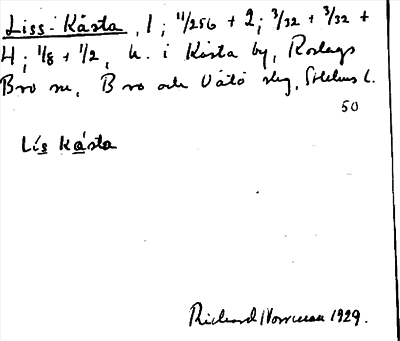 Liss-Kåsta, 1; 11/256 + 2; 3/32 + 3/32 +
4; 1/8 + 1/2, h. i Kåsta by, Roslags
Bro sn, Bro och Vätö slg, Sthlms l.
50
Lis Kåsta
Richard Norrman 1929.